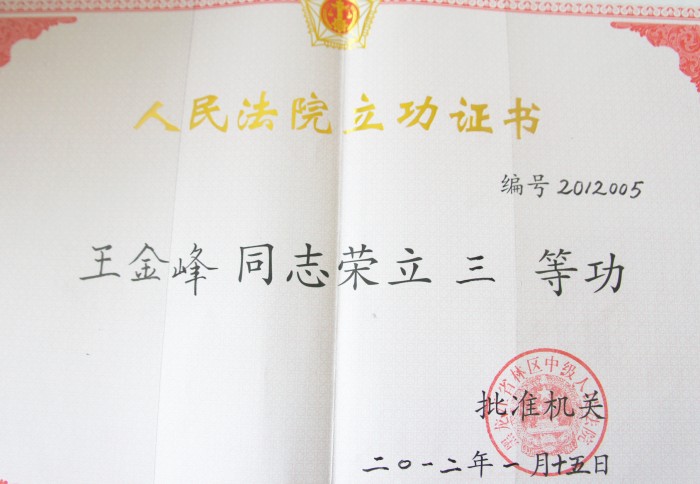 人民法院立功证书
编号 2012005
王金峰 同志荣立 三 等功
黑龙江省林区中级人民法院
批准机关
二〇一二年一月十五日